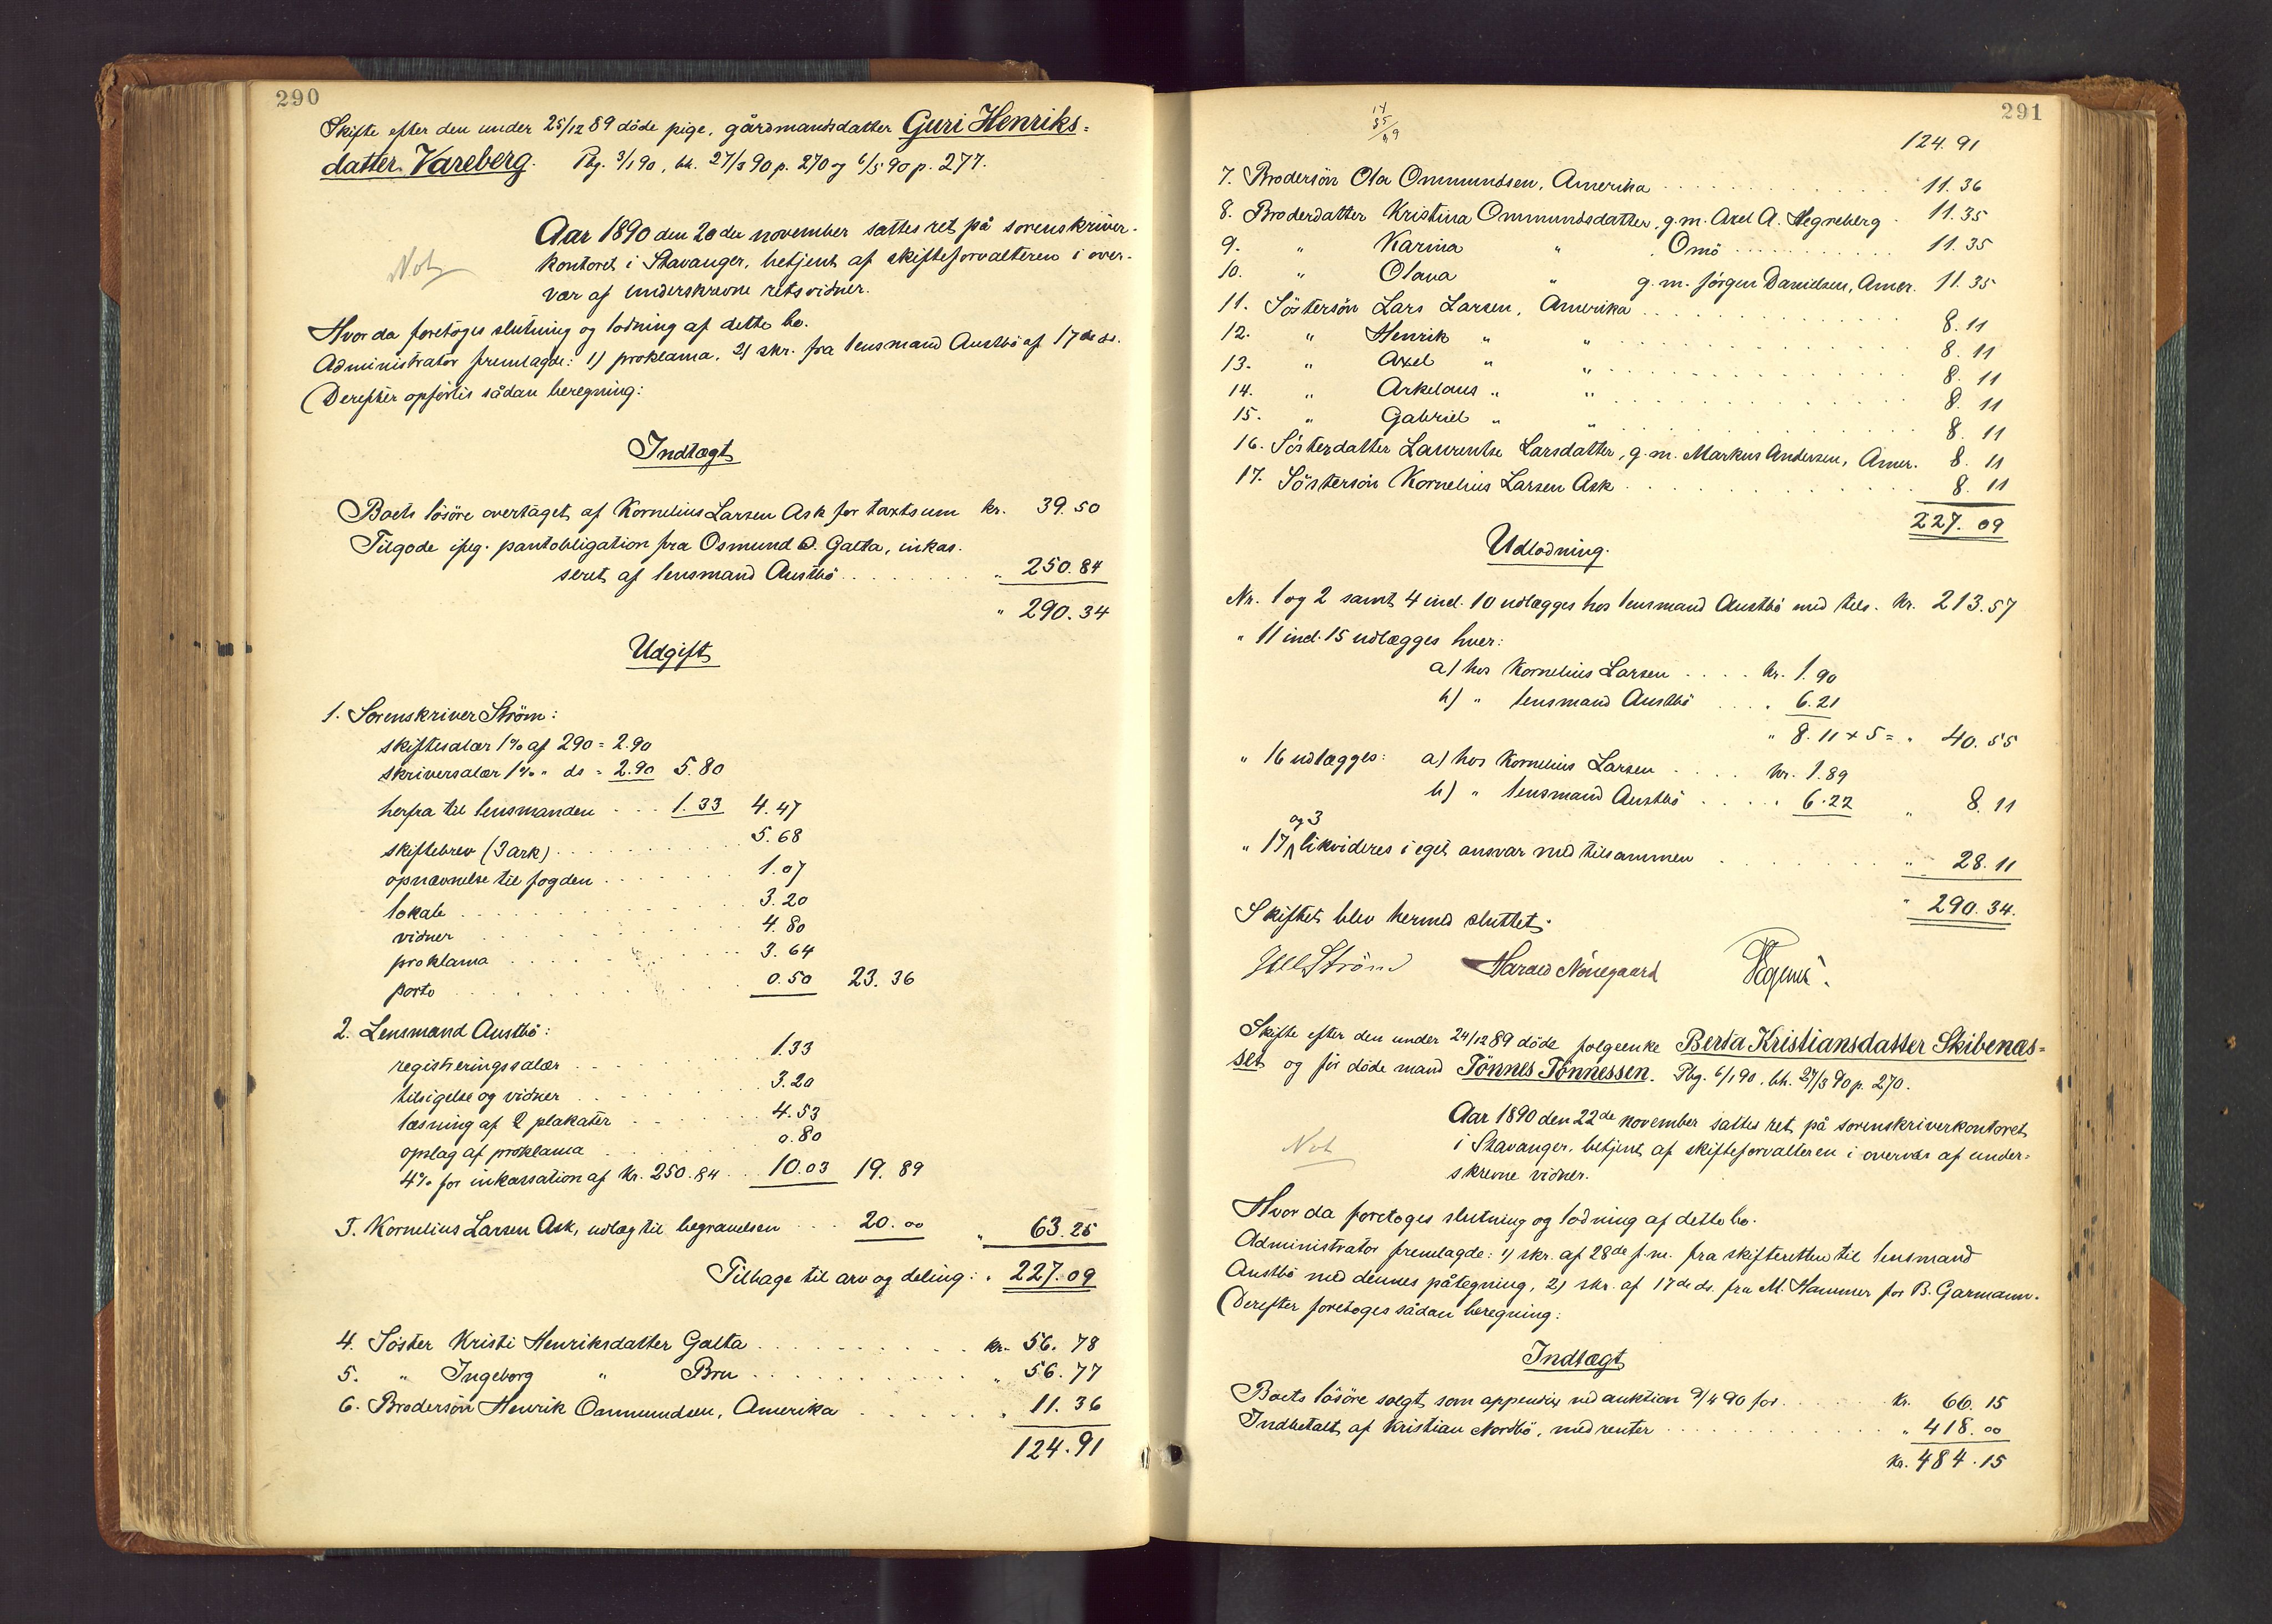 290
Skifte efter den under 25/12 89 döde pige, gårdmandsdatter Guri Henriks=
datter Vareberg. Pbg. 3/1 90, bh. 27/3 90 p. 270 og 6/5 90 p. 277.
Not
Aar 1890 den 20de november sattes ret på sorenskriver-
kontoret i Stavanger, betjent af skifteforvalteren i over-
vær af underskrevne retsvidner.
Hvor da foretoges slutning og lodning af dette bo.
Administrator fremlagde: 1) proklama, 2) skr. fra lensmand Austbö af 17de ds.
Derefter opförtes sådan beregning:
Indtægt
Boets lösöre overtaget af Kornelius Larsen Ask for taxtsum kr. 39.50
Tilgode ifølg. pantobligation fra Osmund O. Galta, inkas-
seret af lensmand Austbö . . . " 250.84
" 290.34
Udgift
1. Sorenskriver Ström:
skiftesalær 1% af 290 = 2.90
skriversalær 1% " do = 2.90 5.80
herfra til lensmanden . . . 1.33 4.47
skiftebrev (3 ark) . . . 5.68
opnævnelse til fogden . . . 1.07
lokale . . . 3.20
vidner . . . 4.80
proklama . . . 3.64
porto . . . 0.50 23.36
2. Lensmand Austbö:
registreringssalær . . . 1.33
tilsigelse og vidner . . . 3.20
læsning af 2 plakater . . . 4.53
opslag af proklama . . . 0.80
4% for inkassation af kr. 250.84 . . 10.03 19.89
3. Kornelius Larsen Ask, udlæg til begravelsen . . . 20.00 " 63.25
Tilbage til arv og deling: " 227.09
4. Söster Kristi Henriksdatter Galta . . . kr. 56.78
5. " Ingeborg " Bru . . . " 56.77
6. Brodersön Henrik Ommundsen, Amerika . . . " 11.36
124.91
291
124.91
7. Brodersön Ola Ommundsen, Amerika . . . 11.36
8. Broderdatter Kristina Ommundsdatter, g.m. Axel A. Hegreberg . 11.35
9. " Karina " Omö . . . 11.35
10. " Olava " g.m. Jörgen Danielsen, Amer. 11.35
11. Söstersön Lars Larsen, Amerika . . . 8.11
12. " Henrik " " . . . 8.11
13. " Axel " " . . . 8.11
14. " Arkelaus " " . . . 8.11
15. " Gabriel " " . . . 8.11
16. Sösterdatter Laurentse Larsdatter, g.m. Markus Andersen, Amer. 8.11
17. Söstersön Kornelius Larsen Ask . . . 8.11
227.09
Udlodning.
Nr. 1 og 2 samt 4 incl. 10 udlægges hos lensmand Austbö med tils. kr. 213.57
" 11 incl. 15 udlægges hver:
a) hos Kornelius Larsen . . . . kr. 1.90
b) " lensmand Austbö . . . " 6.21
" 8.11 × 5 = " 40.55
" 16 udlægges: a) hos Kornelius Larsen . . . . kr. 1.89
b) " lensmand Austbö . . . . " 6.22 " 8.11
og 3
" 17 likvideres i eget ansvar med tilsammen . . . " 28.11
" 290.34.
Skiftet blev hermed sluttet.
Ström Harald Nörregaard
Skifte efter den under 24/12 89 döde folgeenke Berta Kristiansdatter Skibenæs=
set og för döde mand Tönnes Tönnessen. Pbg. 6/1 90, bh. 27/3 90 p. 270.
Not
Aar 1890 den 22de november sattes ret på sorenskriverkontoret
i Stavanger, betjent af skifteforvalteren i overvær af under-
skrevne vidner.
Hvor da foretoges slutning og lodning af dette bo.
Administrator fremlagde: 1) skr. af 28de f.m. fra skifteretten til lensmand
Austbö med dennes påtegning, 2) skr. af 17de ds. fra M. Hammer for B. Garmann.
Derefter foretoges sådan beregning:
Indtægt
Boets lösöre solgt som appendix ved auktion 9/4 90 for . . . kr. 66.15
Indbetalt af Kristian Nordbö, med renter . . . " 418.00
kr. 484.15